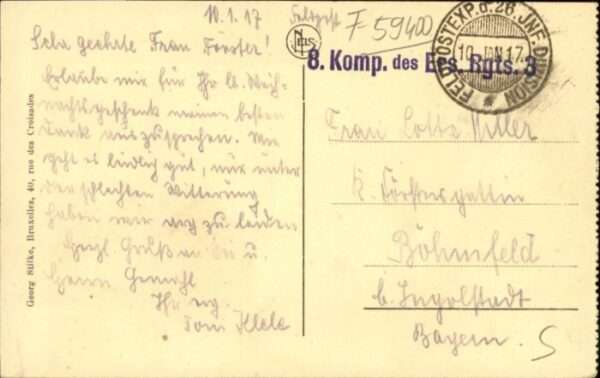 10.1.17
Feldpost
F 59400
Sehr geehrte Frau Förster!
Erlaube mir für Ihr lb. Weih-
nachtsgeschenk meinen besten
Dank auszusprechen. Mir
geht es leidlich gut, nur unter
der schlechten Witterung
haben wir arg zu leiden
Herzl. Gruß an Sie u.
Herrn Gemahl
Ihr erg.
Toni
8. Komp. des Ers. Rgts. 3
FELDPOSTEXP. d. 26. INF. DIVISION
10 JAN 17
Frau Lotte
K. Förstersgattin
Böhmfeld
b. Ingolstadt
Bayern.
S
Georg Stilke, Bruxelles, 40, rue des Croisades